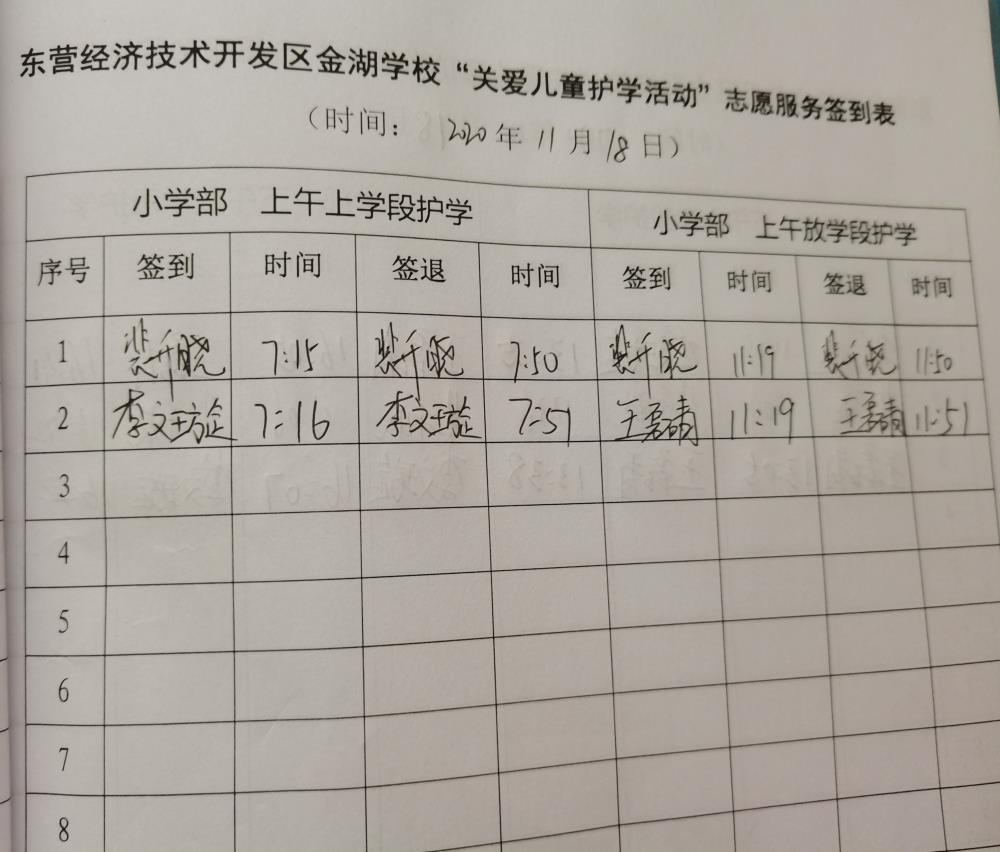 东营经济技术开发区金湖学校“关爱儿童护学活动”志愿服务签到表
（时间： 2020年11月18日）
小学部 上午上学段护学 小学部 上午放学段护学
序号 签到 时间 签退 时间 签到 时间 签退 时间
1 裴千晓 7:15 裴千晓 7:50 裴千晓 11:19 裴千晓 11:50
2 李文璇 7:16 李文璇 7:51 王磊青 11:19 王磊青 11:51
3
4
5
6
7
8